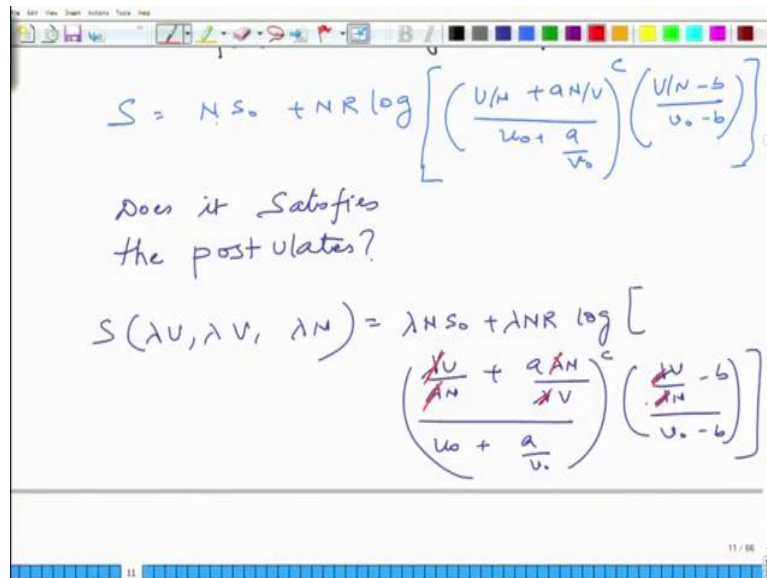 File Edit View Insert Actions Tools Help
S = N S₀ + N R log [ ( (U/N + aN/V) / (u₀ + a/v₀) )^c ( (V/N - b) / (v₀ - b) ) ]
Does it Satisfies
the postulates?
S(λU, λV, λN) = λNS₀ + λNR log [
( (λU/λN + aλN/λV) / (u₀ + a/v₀) )^c ( (λV/λN - b) / (v₀ - b) ) ]
11 / 66
11